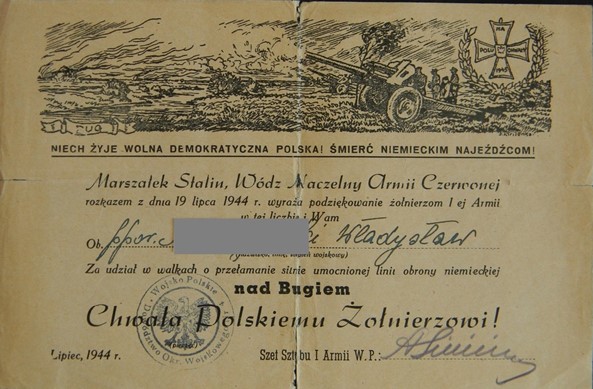 NA
POLU CHWAŁY
1943
BUG
NIECH ŻYJE WOLNA DEMOKRATYCZNA POLSKA! ŚMIERĆ NIEMIECKIM NAJEŹDŹCOM!
Marszałek Stalin, Wódz Naczelny Armii Czerwonej
rozkazem z dnia 19 lipca 1944 r. wyraża podziękowanie żołnierzom I ej Armii
w tej liczbie i Wam
Ob. ppor. Władysław
(nazwisko, imię, stopień wojskowy)
Za udział w walkach o przełamanie silnie umocnionej linii obrony niemieckiej
nad Bugiem
Chwała Polskiemu Żołnierzowi!
Wojsko Polskie
Dowództwo Okr. Wojskowego
Lipiec, 1944 r.
Szef Sztabu I Armii W.P.: